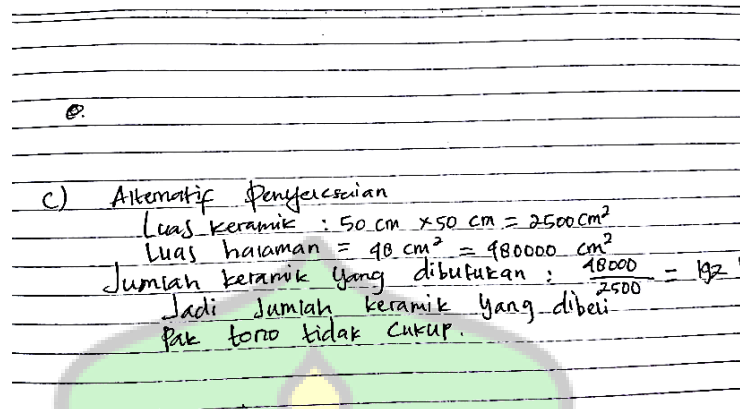 c) Alternatif Penyelesaian
Luas keramik : 50 cm x 50 cm = 2500 cm²
Luas halaman = 48 cm² = 480000 cm²
Jumlah keramik yang dibutukan : 48000/2500 = 192
Jadi Jumlah keramik yang dibeli
Pak tono tidak cukup.